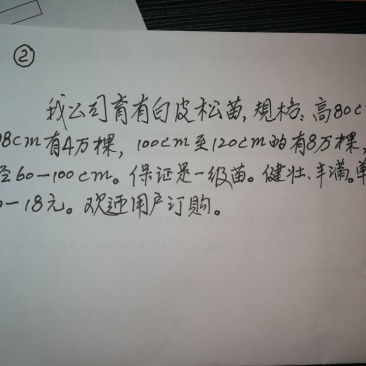 ②
我公司育有白皮松苗,规格:高80c
98cm有4万棵,100cm至120cm的有8万棵,
至60-100cm。保证是一级苗。健壮、丰满。单
0-18元。欢迎用户订购。